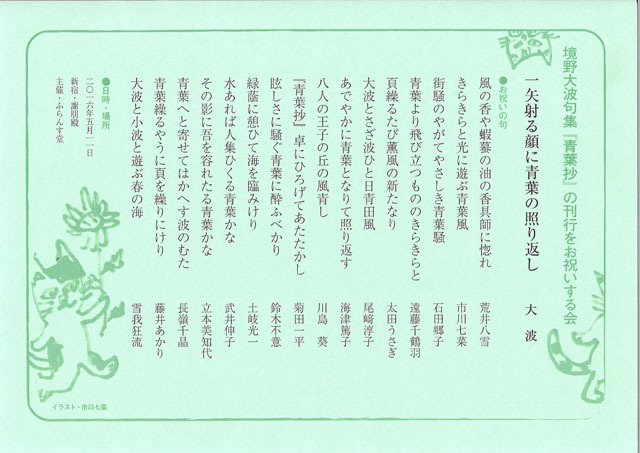 境野大波句集『青葉抄』の刊行をお祝いする会
一矢射る顔に青葉の照り返し　大波
●お祝いの句
風の香や蝦蟇の油の香具師に惚れ　荒井八雪
きらきらと光に遊ぶ青葉風　市川七菜
街騒のやがてやさしき青葉騒　石田郷子
青葉より飛び立つもののきらきらと　遠藤千鶴羽
頁繰るたび薫風の新たなり　太田うさぎ
大波とさざ波ひと日青田風　尾﨑淳子
あでやかに青葉となりて照り返す　海津篤子
八人の王子の丘の風青し　川島葵
『青葉抄』卓にひろげてあたたかし　菊田一平
眩しさに騒ぐ青葉に酔ふべかり　鈴木不意
緑蔭に憩ひて海を臨みけり　土岐光一
水あれば人集ひくる青葉かな　武井伸子
その影に吾を容れたる青葉かな　立本美知代
青葉へと寄せてはかへす波のむた　長嶺千晶
青葉繰るやうに頁を繰りにけり　藤井あかり
大波と小波と遊ぶ春の海　雪我狂流
●日時・場所
二〇一六年五月二一日
新宿・謝朋殿
主催・ふらんす堂
イラスト・市川七菜